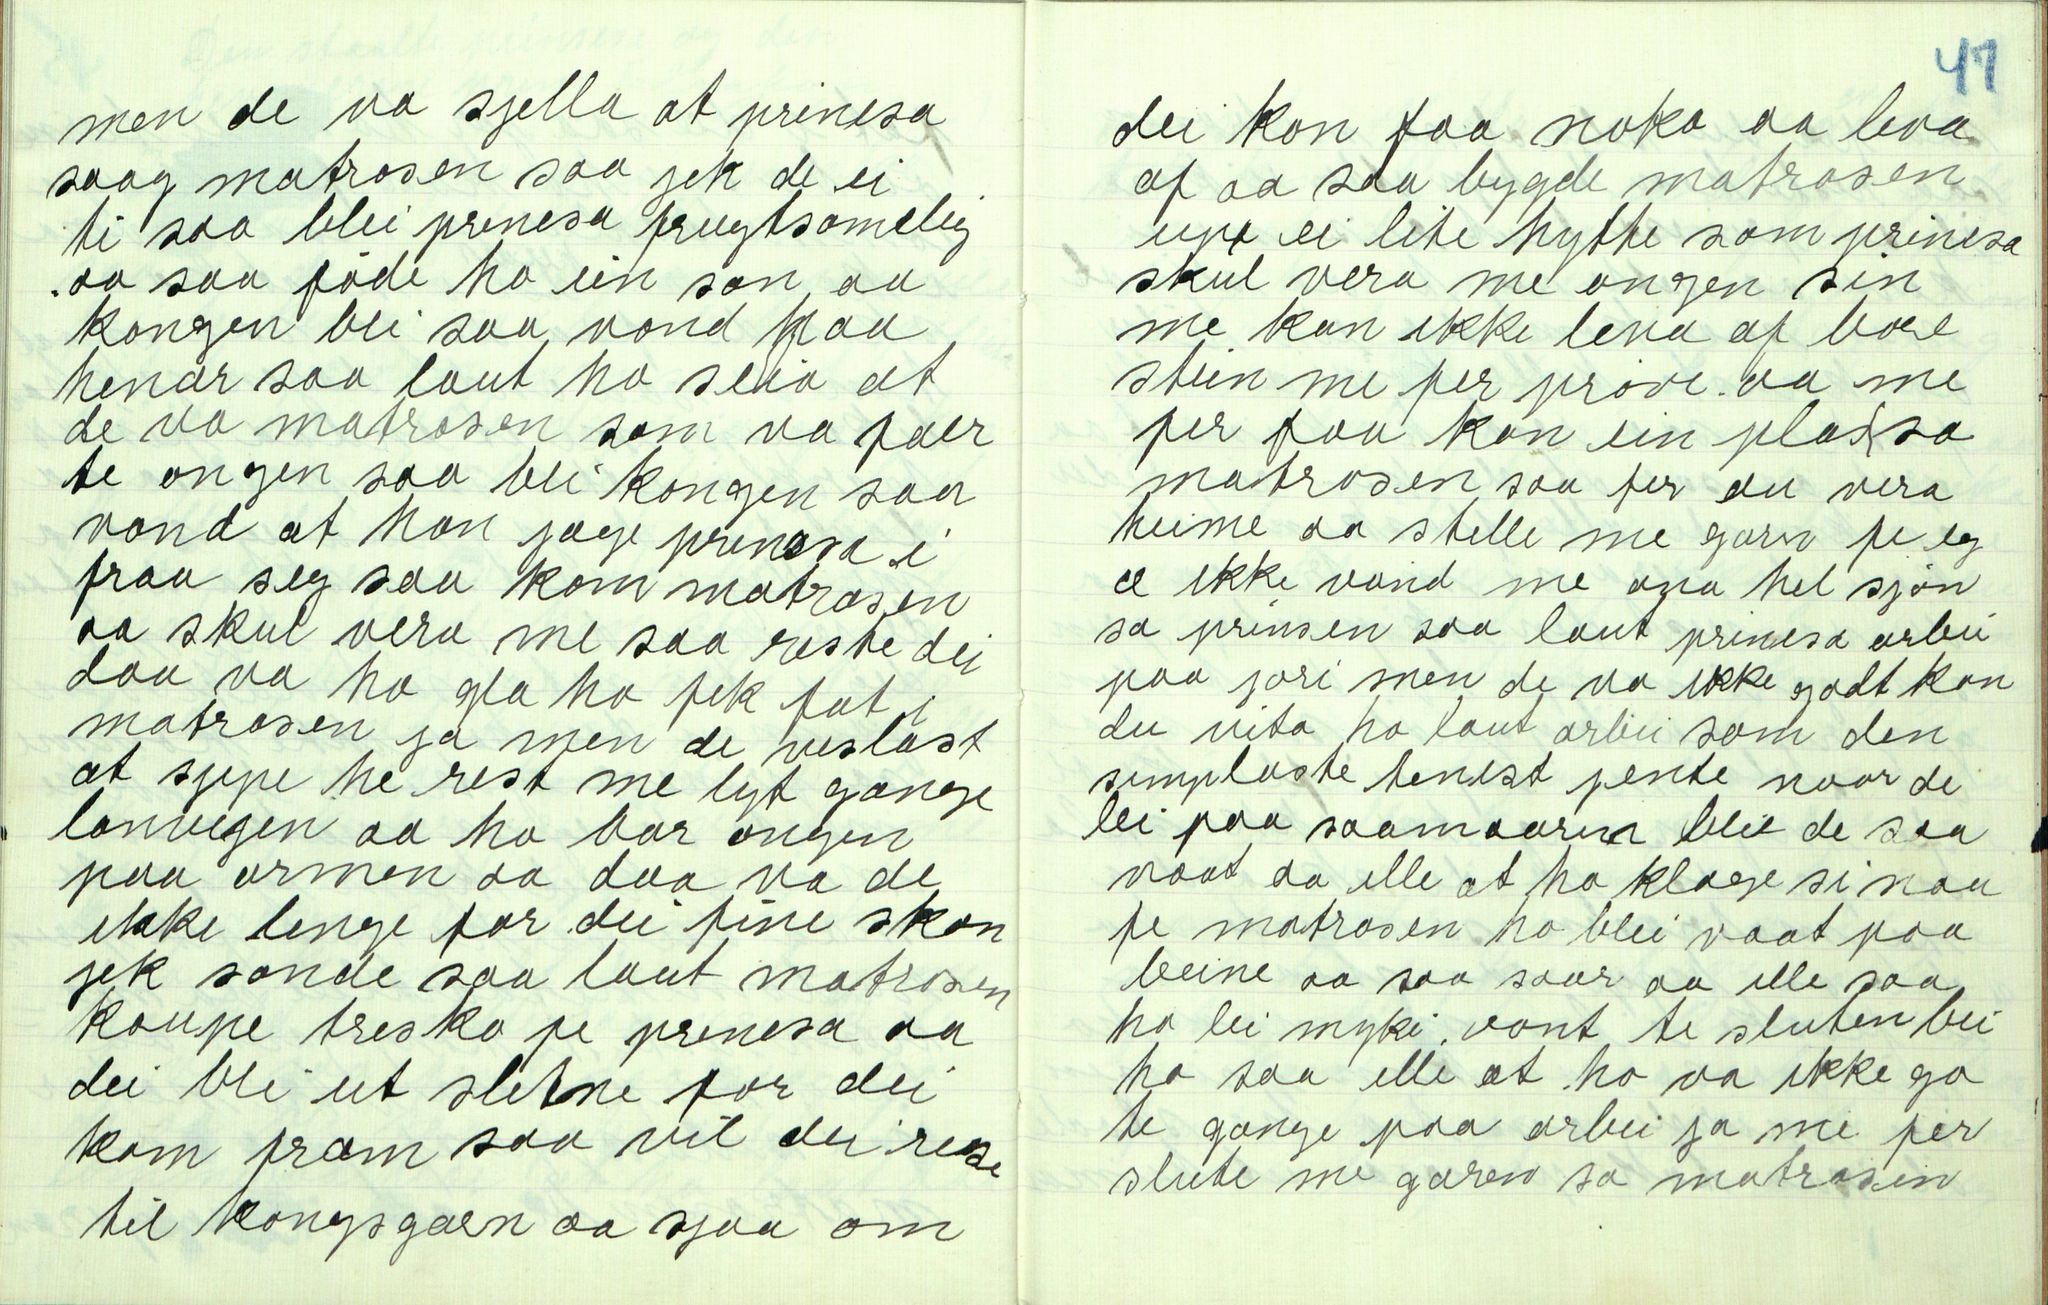 men de va sjella at prinesa
saag matrosen saa jek de ei
ti saa blei prinesa frugtsomelig
aa saa föde ho ein son aa
kongen blei saa vond paa
henar saa laut ho seia at
de va matrosen som va faer
te ongen saa blei kongen saa
vond at han jage prinesa i
fraa seg saa kom matrosen
aa skul vera me saa reste dei
daa va ho gla ho fek fat i
matrosen ja men de veslast
at sjipe he rest me lyt gange
lanvegen aa ho bar ongen
paa armen aa daa va de
ikke lenge for dei fine skon
jek sonde saa laut matrosen
koupe tresko fe prinesa aa
dei blei ut sletne for dei
kom fram saa vil dei reise
til kongsgaern aa sjaa om
47
dei kan faa noko aa leva
af aa saa bygde matrosen
upp ei lite hytte som prinesa
skul vera me ongen sin
me kan ikke leva af bare
stein me fer pröve aa me
fer faa kan ein plas sa
matrosen saa fer du vera
heime aa stelle me garn fe eg
æ ikke vand me ana hel sjön
sa prinsen saa laut prinesa arbei
paa jori men de va ikke godt kan
du vita ho laut arbei som den
simplaste tenest jente naar de
lei paa saamaaren blei de saa
vaat aa ille at ho klage si naa
fe matrosen ho blei vaat paa
beine aa saa saar aa ille saa
ho lei myki vont te sluten blei
ho saa ille at ho va ikke go
te gange paa arbei ja me fer
slute me garen sa matrosen